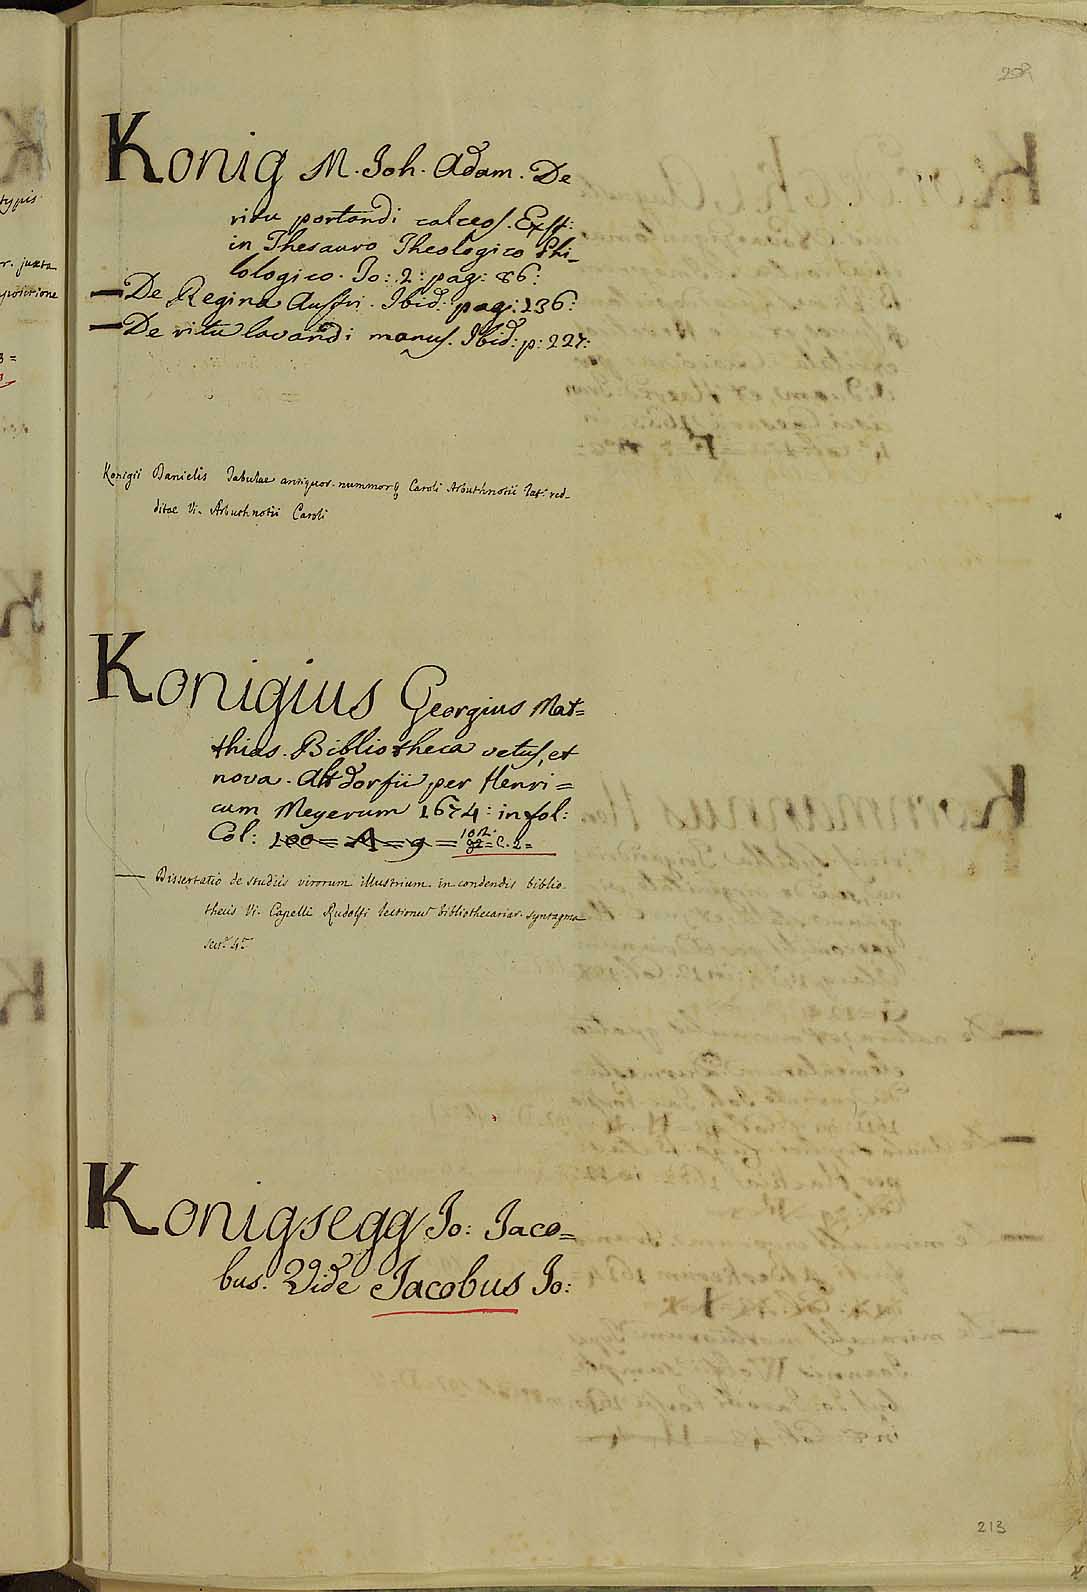 208
Konig M. Joh. Adam. De
ritu portandi calceos. Exst:
in Thesauro Theologico Phi-
lologico. To: 2: pag: 86:
— De Regina Austri. Ibid: pag: 136:
— De ritu lavandi manus. Ibid: p: 227:
Konigii Danielis Tabulae antiquor. nummorq Caroli Arbuthnotii Lat. red-
ditae Vi. Arbuthnotii Caroli
Konigius Georgius Mat=
thias. Bibliotheca vetus, et
nova. Altdorfii per Henri=
cum Meyerum 1674: in fol:
Col: 100 = A = 9 = 102. = C. 2 =
— Dissertatio de studiis virorum illustrium in condendis biblio
thecis Vi. Capelli Rudolfi Lectionum bibliothecariar. syntagma
Konigsegg Jo: Jaco=
bus. Vide Jacobus Jo:
213